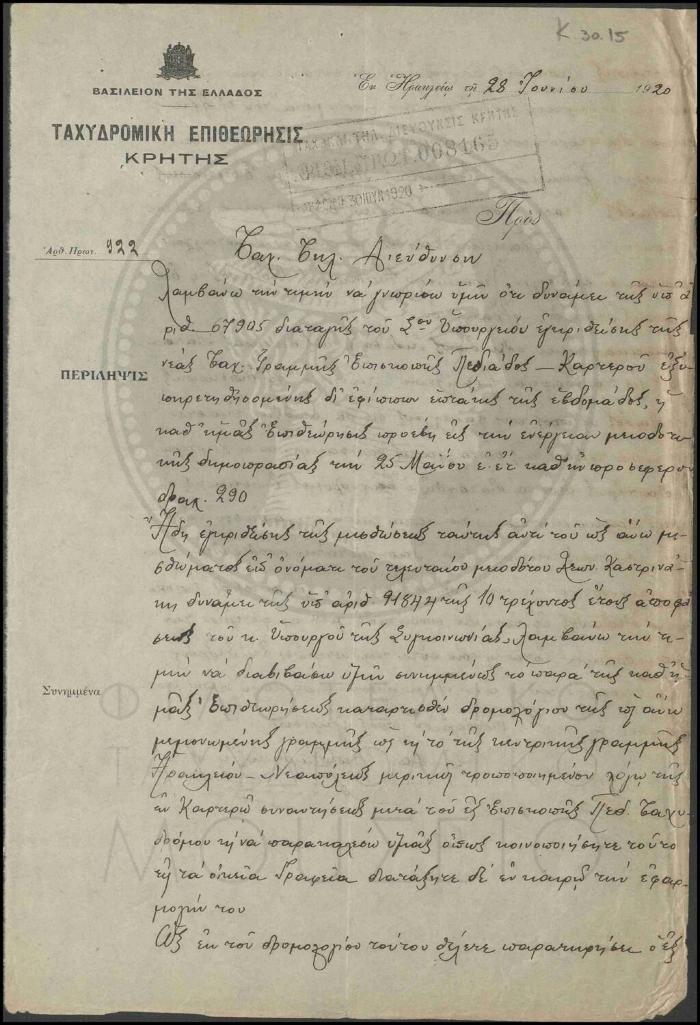 Κ 30.15
ΒΑΣΙΛΕΙΟΝ ΤΗΣ ΕΛΛΑΔΟΣ
Ἐν Ἡρακλείῳ τῇ 28 Ἰουνίου 1920
ΤΑΧΥΔΡΟΜΙΚΗ ΕΠΙΘΕΩΡΗΣΙΣ
ΚΡΗΤΗΣ
ΤΑΧ. ΤΗΛ. ΔΙΕΥΘΥΝΣΙΣ ΚΡΗΤΗΣ
ΑΡΙΘ. ΠΡΩΤ. 008165
30 ΙΟΥΝ 1920
Πρὸς
Ἀριθ. Πρωτ. 922
Ταχ. Τηλ. Διεύθυνσιν
Λαμβάνω τὴν τιμὴν νὰ γνωρίσω ὑμῖν ὅτι δυνάμει τῆς ὑπ' ἀ
ριθ. 67905 διαταγῆς τοῦ Σου Ὑπουργείου ἐγκριθείσης τῆς
νέας Ταχ. Γραμμῆς Ἐπισκοπῆς Πεδιάδος – Καρτεροῦ ἐξυ
ΠΕΡΙΛΗΨΙΣ
πηρετηθησομένης δι' ἐφίππων ἑπτάκις τῆς ἑβδομάδος, ἡ
καθ' ἡμᾶς Ἐπιθεώρησις προέβη εἰς τὴν ἐνέργειαν μειοδοτι
κῆς δημοπρασίας τὴν 25 Μαΐου ἐ. ἔτ. καθ' ἣν προσεφέρον
δραχ. 290
Ἤδη ἐγκριθείσης τῆς μισθώσεως ταύτης ἀντὶ τοῦ ὡς ἄνω μι
σθώματος ἐπ' ὀνόματι τοῦ τελευταίου μειοδότου Λεων. Καστρινά
κη δυνάμει τῆς ὑπ' ἀριθ 91844 τῆς 10 τρέχοντος ἔτους ἀποφά
σεως τοῦ κ. Ὑπουργοῦ τῆς Συγκοινωνίας, λαμβάνω τὴν τι
μὴν νὰ διαβιβάσω ὑμῖν συνημμένως τὸ παρὰ τῆς καθ' ἡ
Συνημμένα
μᾶς Ἐπιθεωρήσεως καταρτισθὲν δρομολόγιον τῆς ὡς ἄνω
μεμονωμένης γραμμῆς ὡς κ' τὸ τῆς κεντρικῆς γραμμῆς
Ἡρακλείου – Νεαπόλεως μερικῶς τροποποιημένον λόγῳ τῆς
ἐν Καρτερῷ συναντήσεως μετὰ τοῦ ἐξ Ἐπισκοπῆς Πεδ. Ταχυ
δρόμου κ' νὰ παρακαλέσω ὑμᾶς ὅπως κοινοποιήσητε τοῦτο
εἰς τὰ οἰκεῖα Γραφεῖα διατάξητε δὲ ἐν καιρῷ τὴν ἐφαρ
μογήν του
Ὡς ἐκ τοῦ δρομολογίου τούτου θέλετε παρατηρήσει ὁ ἐξ
ΦΙΛΟΤΕΛΙΚΟ
ΤΑΧΥΔΡΟΜΙΚΟ
ΜΟΥΣΕΙΟ